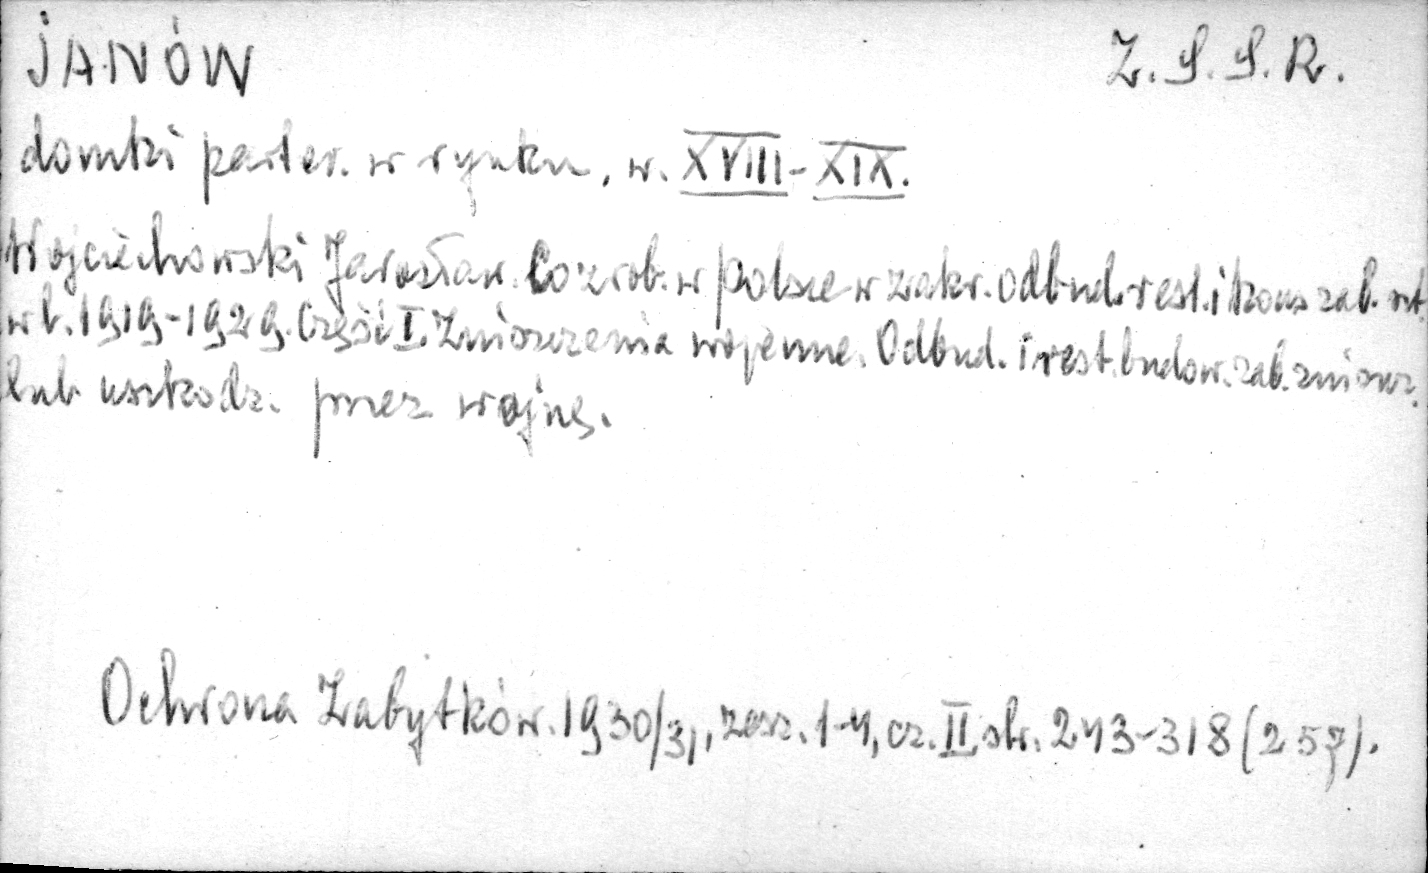 JANÓW Z.S.S.R.
domki parter. w rynku, w. XVIII-XIX.
Wojciechowski Jarosław. Co zrob. w Polsce w zakr. odbud. rest. i kons zab. arch.
w l. 1919-1929. Część I. Zniszczenia wojenne. Odbud. i rest. budow. zab. zniszcz.
lub uszkodz. przez wojnę.
Ochrona Zabytków. 1930/31, zesz. 1-4, cz. II, str. 243-318 (257).